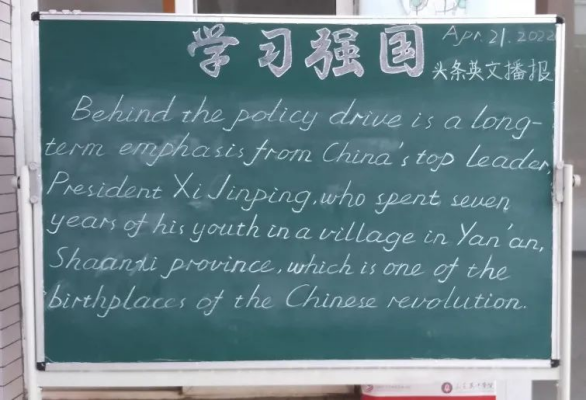 学习强国
Apr. 21. 2022
头条英文播报
Behind the policy drive is a long-
term emphasis from China's top leader,
President Xi Jinping, who spent seven
years of his youth in a village in Yan'an,
Shaanxi province, which is one of the
birthplaces of the Chinese revolution.